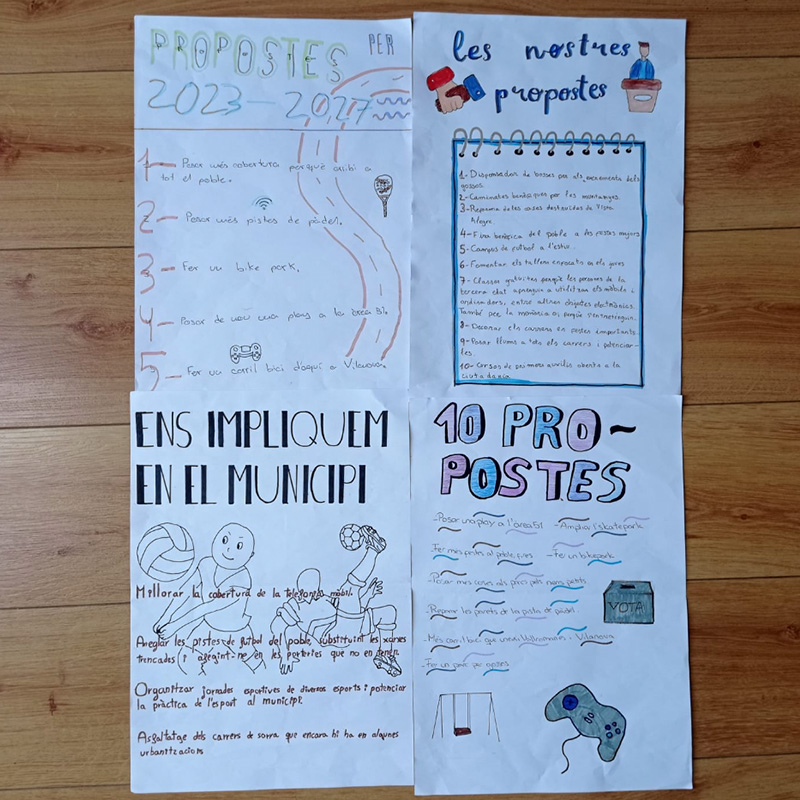 PROPOSTES PER
2023-2027
1- Posar més cobertura perquè arribi a
tot el poble.
2- Posar més pistes de pàdel.
3- Fer un bike park.
4- Posar de nou una play a la àrea 51.
5- Fer un carril bici d'aquí a Vilanova.
les nostres
propostes
1- Dispensador de bosses per als excrements dels
gossos.
2- Caminates bandàques per les muntanyes.
3- Reforma de les cases destruïdes de Vista
Alegre.
4- Fira benèfica del poble a les festes majors
5- Campus de futbol a l'estiu.
6- Fomentar els tallers enfocats en els joves
7- Classes gratuïtes perquè les persones de la
tercera edat aprenguin a utilitzar els mòbils i
ordinadors, entre altres objectes electrònics.
També per la memòria i perquè s'entretinguin.
8- Decorar els carrers en festes importants.
9- Posar llums a tots els carrers i potenciar-
les.
10- Cursos de primers auxilis oberts a la
ciutadania.
ENS IMPLIQUEM
EN EL MUNICIPI
Millorar la cobertura de la telefonia mòbil.
Arreglar les pistes de futbol del poble, substituint les xarxes
trencades i afegint-ne en les porteries que no en tenen.
Organitzar jornades esportives de diversos esports i potenciar
la pràctica de l'esport al municipi.
Asfaltatge dels carrers de sorra que encara hi ha en algunes
urbanitzacions
10 PRO-
POSTES
-Posar una play a l'area 51 -Ampliar l'skatepark
-Fer més festes al poble -Fer un bikepark
-Posar més coses als parcs pels nens petits.
-Reparar les parets de la pista de pàdel.
-Més carril bici que uneixi i Vilanova
-Fer un parc per gossos
VOTA